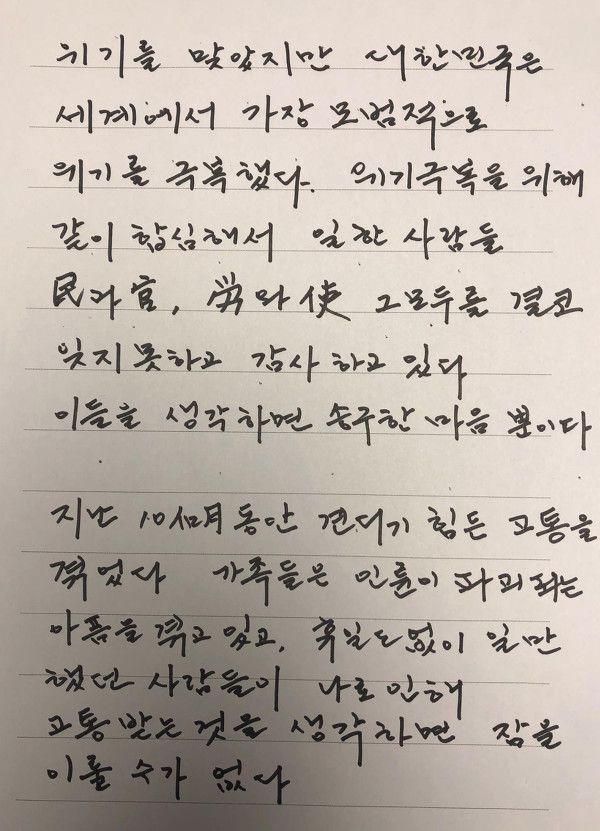 위기를 맞았지만 대한민국은
세계에서 가장 모범적으로
위기를 극복했다. 위기극복을 위해
같이 합심해서 일한 사람들
民과 官, 労와 使 그모두를 결코
잊지못하고 감사하고 있다
이들을 생각하면 송구한 마음 뿐이다
지난 10개月 동안 견디기 힘든 고통을
겪었다 가족들은 인륜이 파괴되는
아픔을 겪고 있고, 휴일도 없이 일만
했던 사람들이 나로 인해
고통 받는 것을 생각하면 잠을
이룰 수가 없다